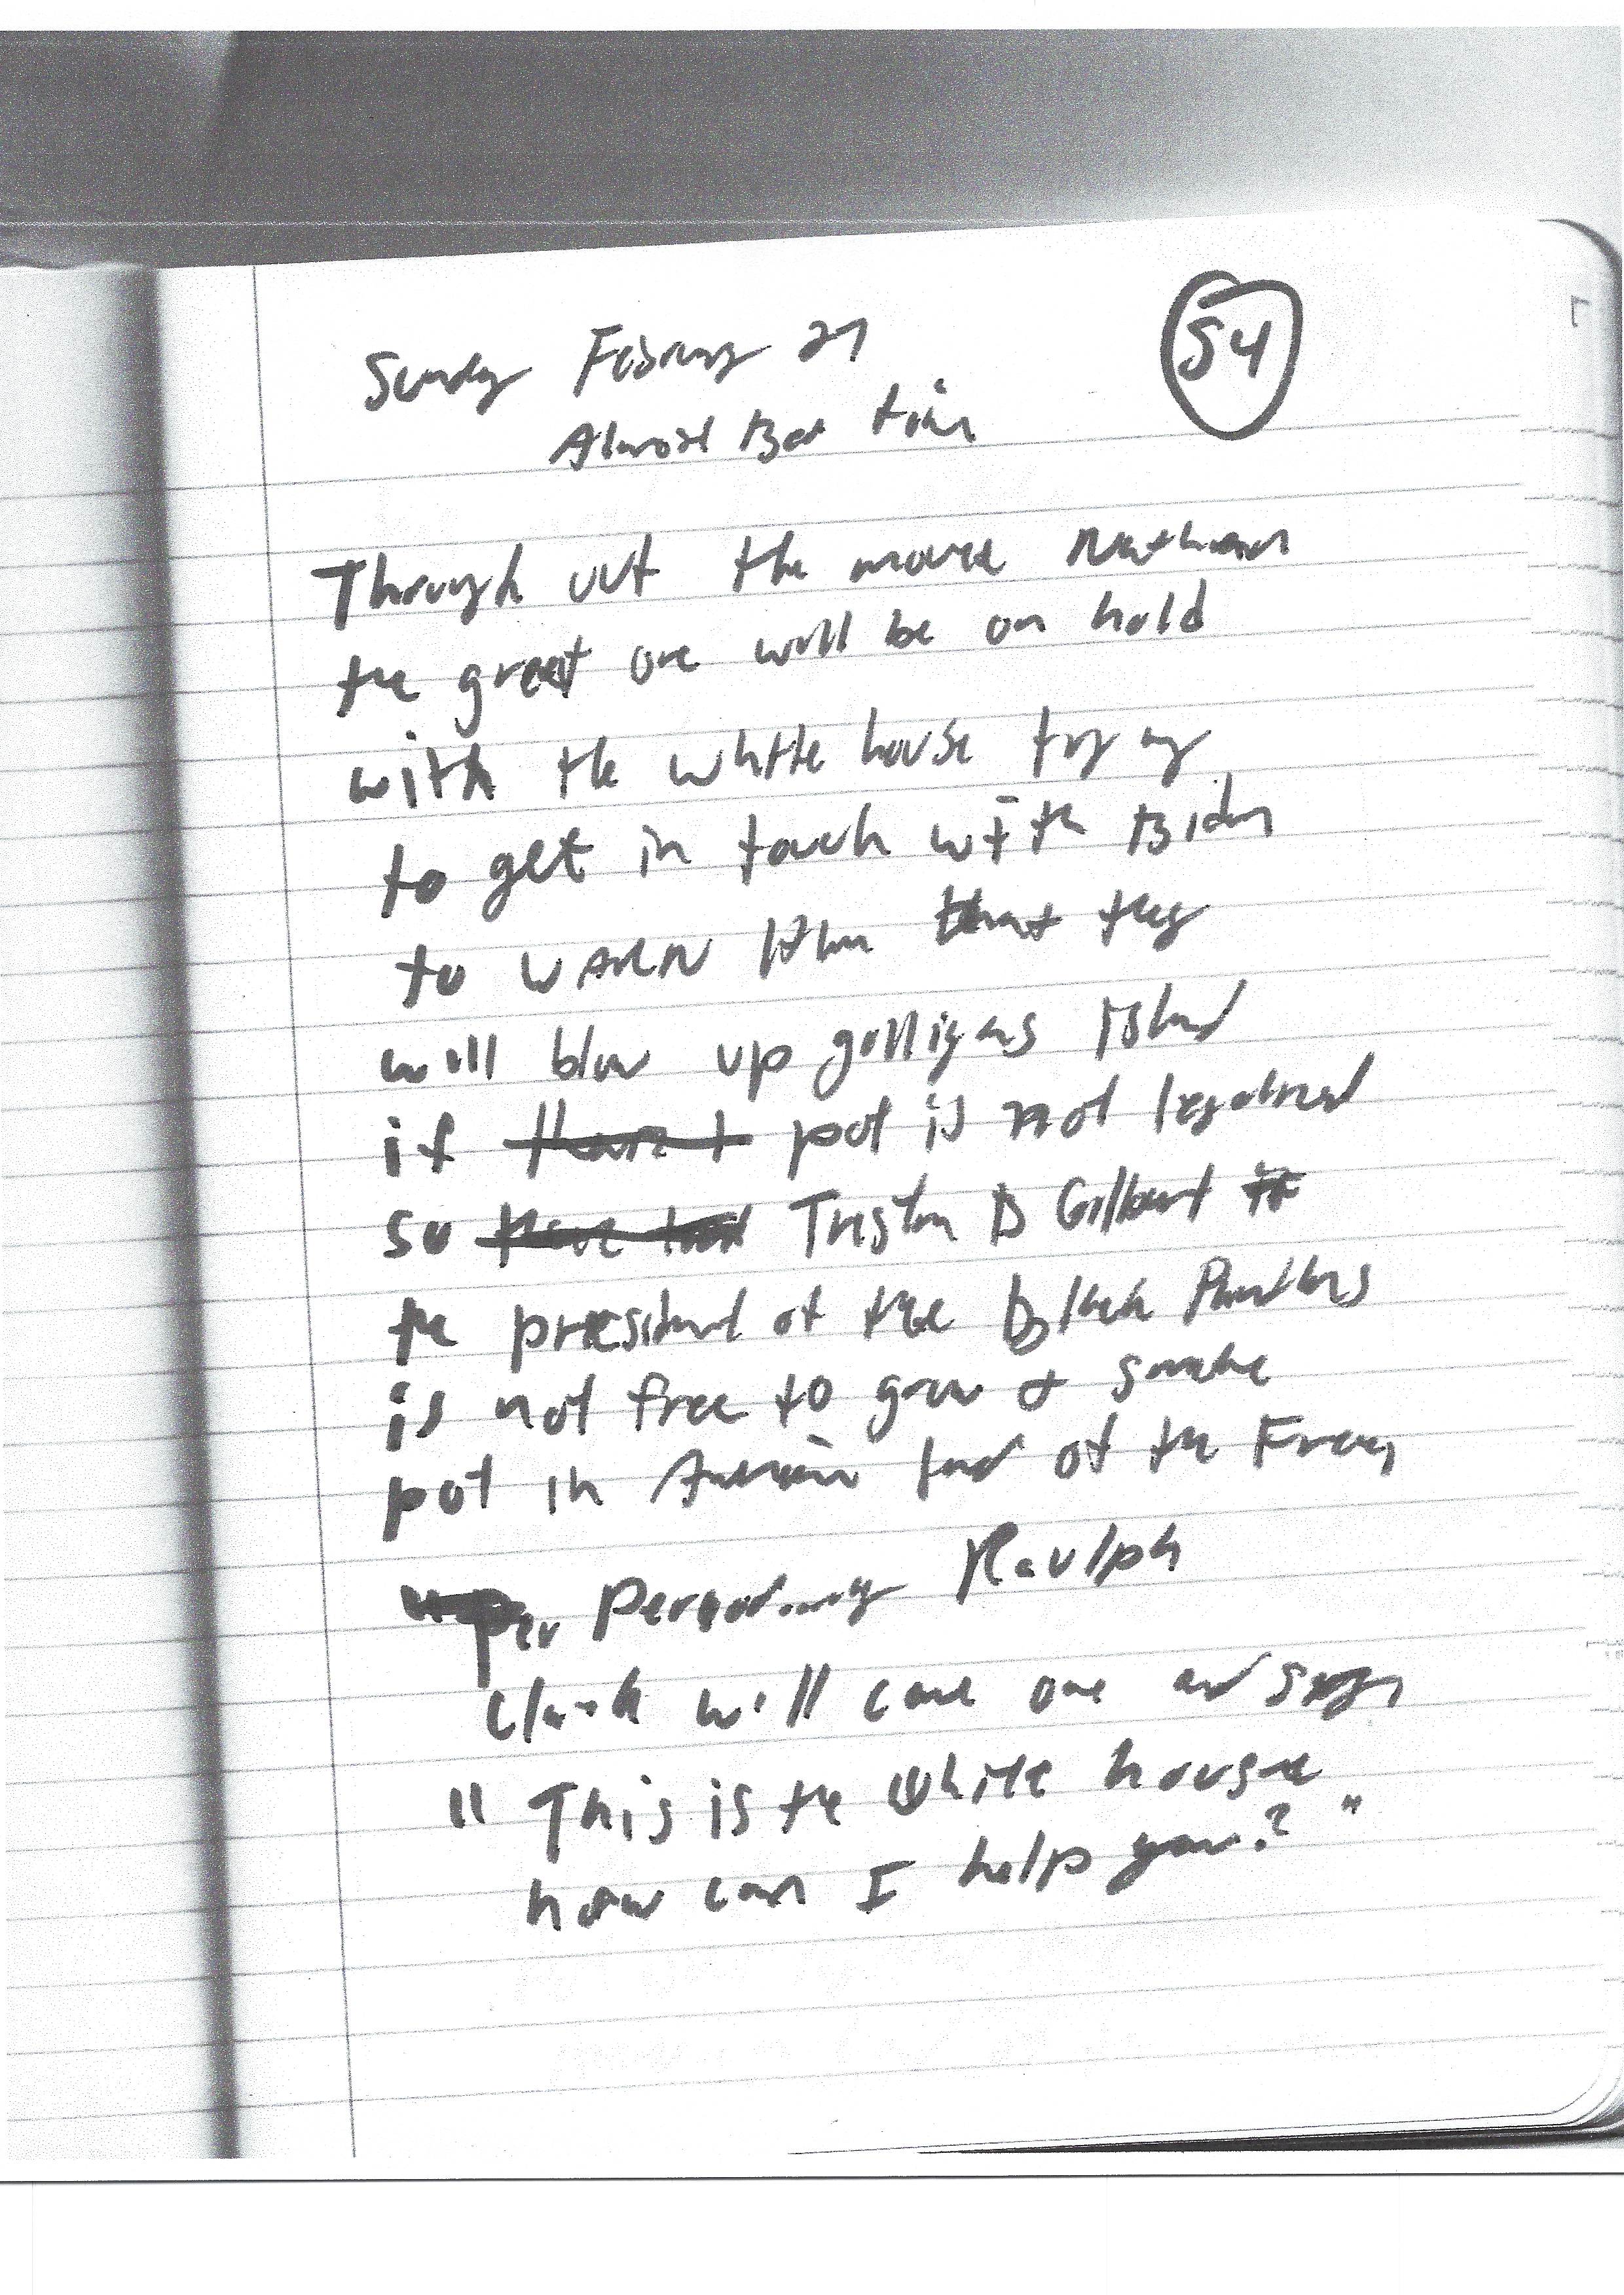 54
Sunday February 27
Almost Bed time
Through out the movie Nathaan
the great one will be on hold
with the white house trying
to get in touch with Biden
to WARN Him that they
will blow up gilligans Island
if pot is not legalized
so Triston D Gilbert
the president of the Black Panthers
is not free to grow & smoke
pot in America land of the Free,
Raulph
Clark will come one and says
"This is the White house
how can I help you?"